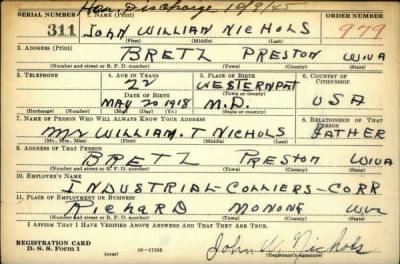 Hon. Discharge 10/9/45
SERIAL NUMBER 1. NAME (Print) ORDER NUMBER
311 JOHN WILLIAN NICHOLS 979
(First) (Middle) (Last)
2. ADDRESS (Print)
BRETZ PRESTON WVA
(Number and street or R. F. D. number) (Town) (County) (State)
3. TELEPHONE 4. AGE IN YEARS 5. PLACE OF BIRTH 6. COUNTRY OF CITIZENSHIP
22 WESTERNPORT
DATE OF BIRTH
MAY 20 1918 M.D. USA
(Exchange) (Number) (Mo.) (Day) (Yr.) (State or country)
7. NAME OF PERSON WHO WILL ALWAYS KNOW YOUR ADDRESS 8. RELATIONSHIP OF THAT PERSON
MR WILLIAM. T NICHOLS FATHER
(Mr., Mrs., Miss) (First) (Middle) (Last)
9. ADDRESS OF THAT PERSON
BRETZ PRESTON WVA
(Number and street or R. F. D. number) (Town) (County) (State)
10. EMPLOYER'S NAME
INDUSTRIAL-COLLIERS-CORR
11. PLACE OF EMPLOYMENT OR BUSINESS
RICHARD MONONG WVA
(Number and street or R. F. D. number) (Town) (County) (State)
I AFFIRM THAT I HAVE VERIFIED ABOVE ANSWERS AND THAT THEY ARE TRUE.
REGISTRATION CARD
D. S. S. Form 1 (over) 16-17105 John W. Nichols
(Registrant's signature)